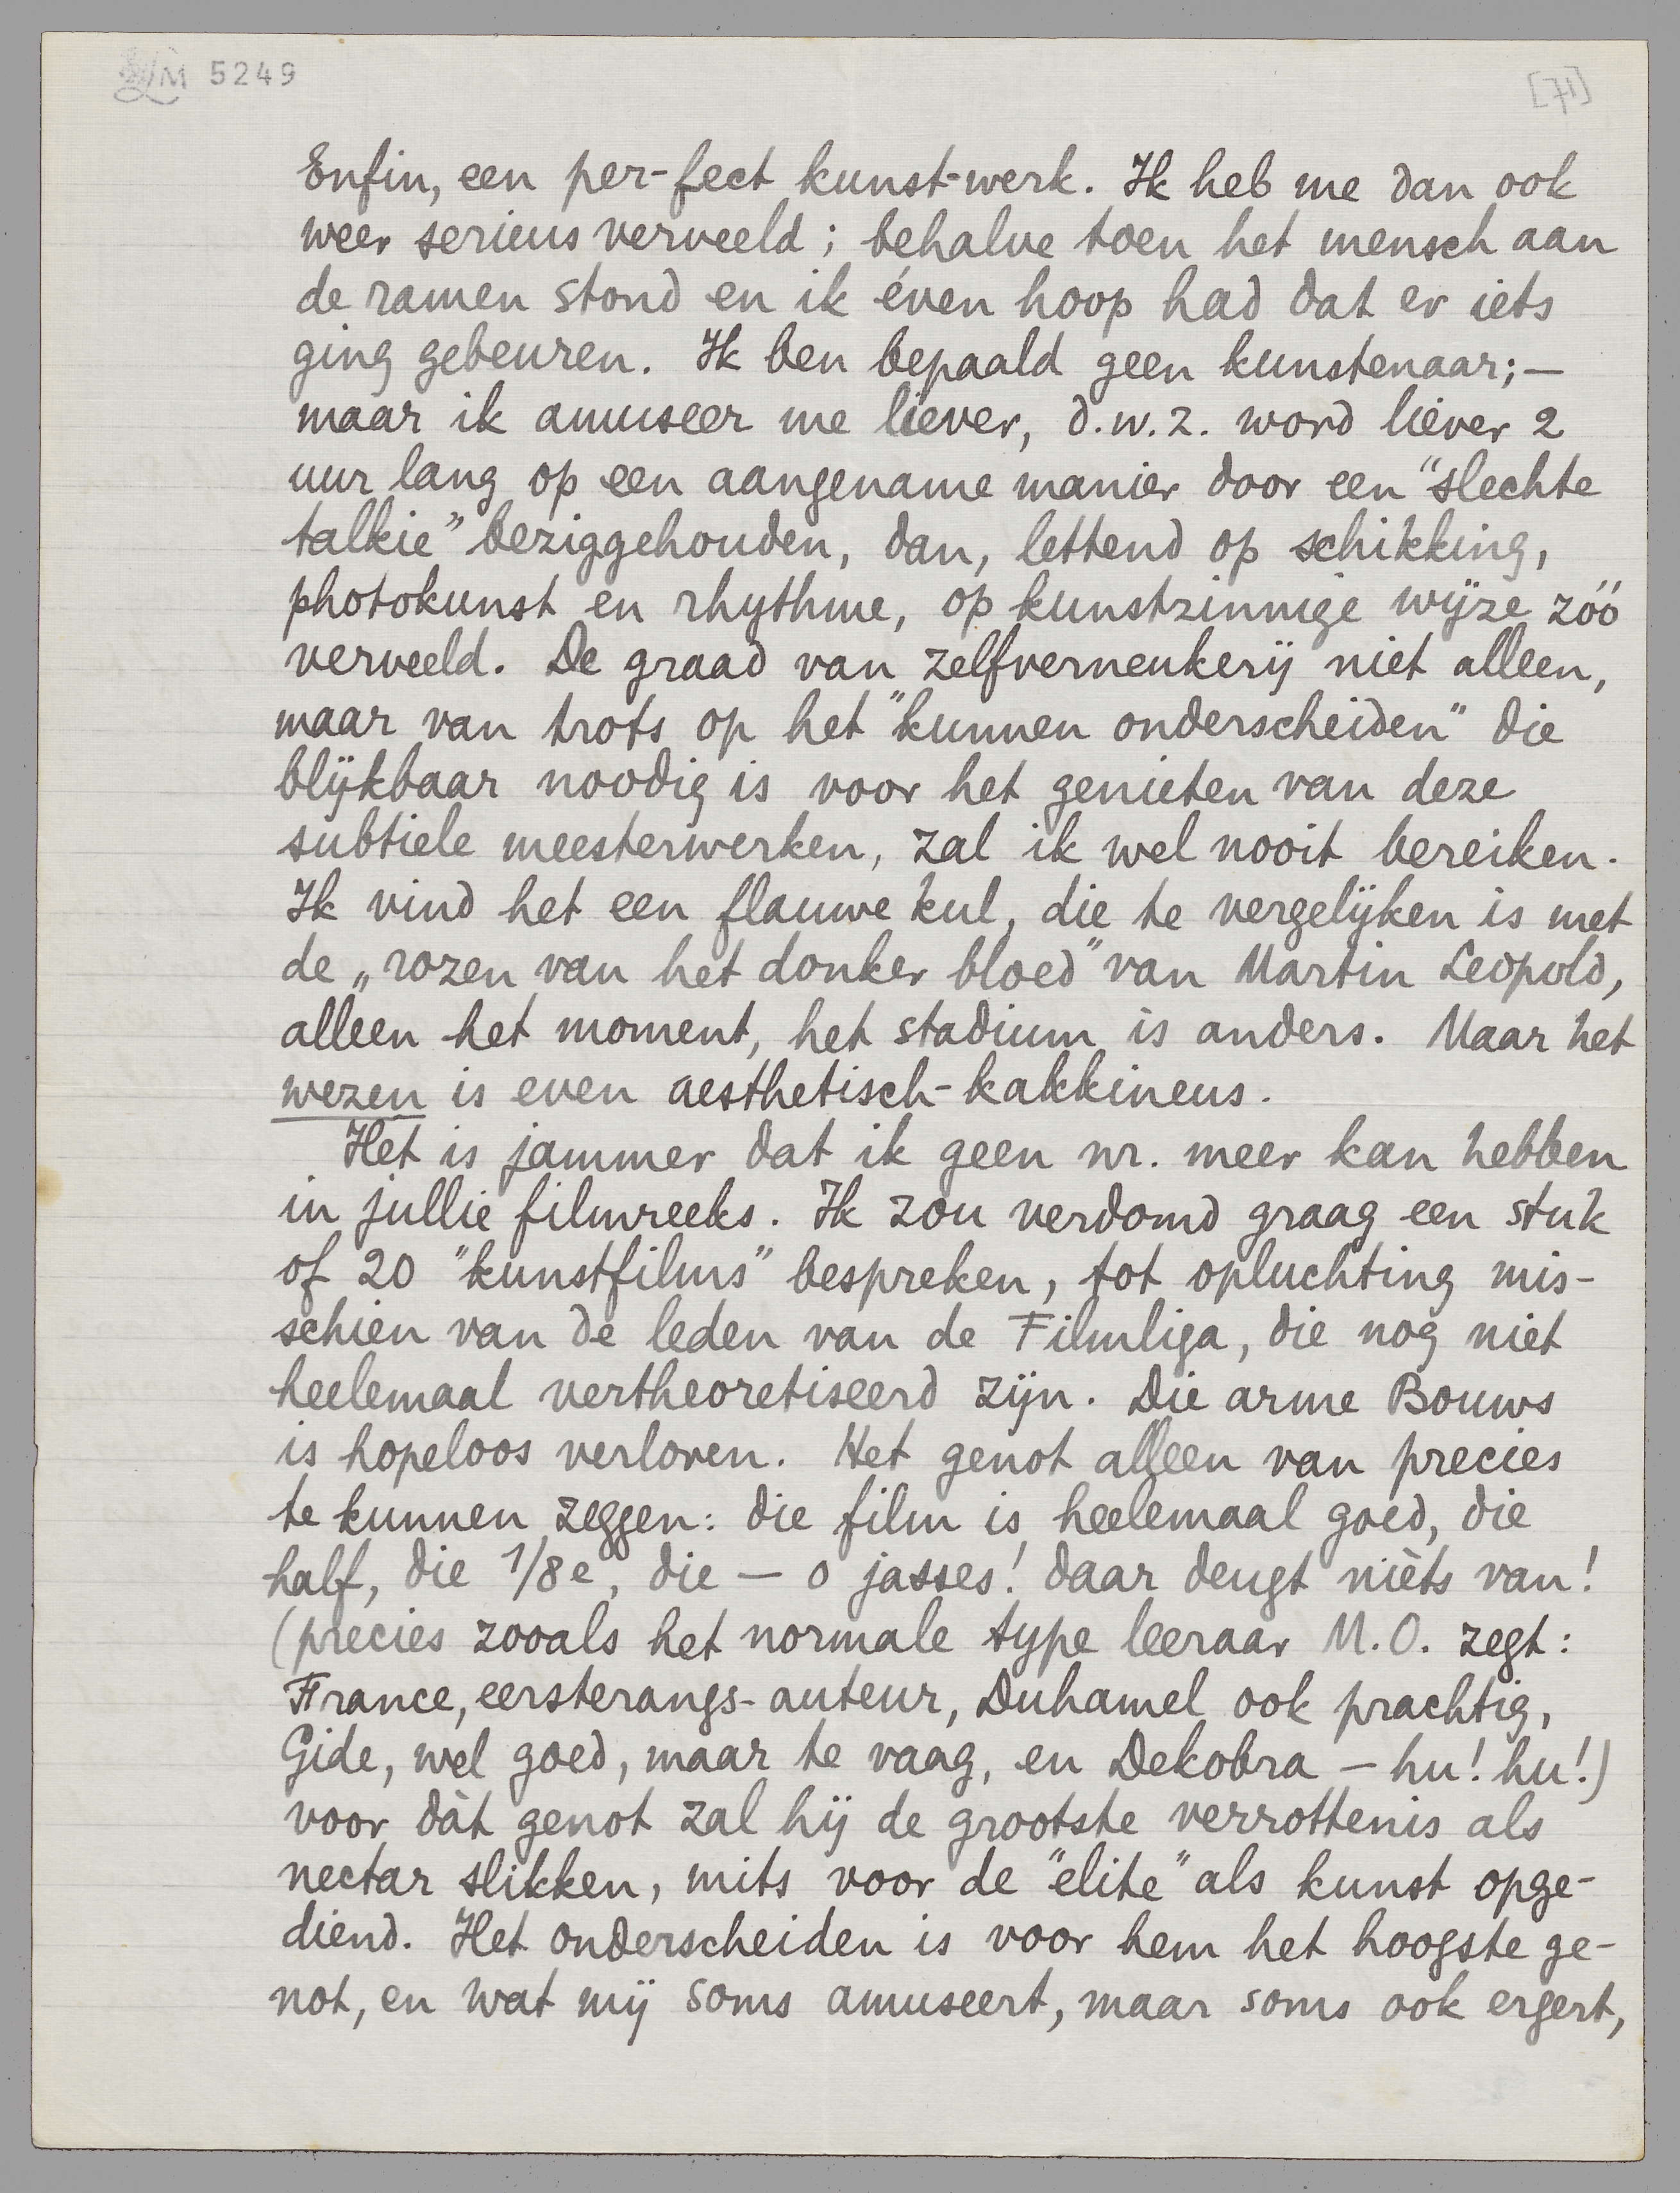 LM 5249
[71]
Enfin, een per-fect kunst-werk. Ik heb me dan ook
weer serieus verveeld; behalve toen het mensch aan
de ramen stond en ik éven hoop had dat er iets
ging gebeuren. Ik ben bepaald geen kunstenaar;—
maar ik amuseer me liever, d.w.z. word liever 2
uur lang op een aangename manier door een "slechte
talkie" beziggehouden, dan, lettend op schikking,
photokunst en rhythme, op kunstzinnige wijze zóó
verveeld. De graad van zelfverneukerij niet alleen,
maar van trots op het "kunnen onderscheiden" die
blijkbaar noodig is voor het genieten van deze
subtiele meesterwerken, zal ik wel nooit bereiken.
Ik vind het een flauwe kul, die te vergelijken is met
de „rozen van het donker bloed" van Martin Leopold,
alleen het moment, het stadium is anders. Maar het
wezen is even aesthetisch-kakkineus.
Het is jammer dat ik geen nr. meer kan hebben
in jullie filmreeks. Ik zou verdomd graag een stuk
of 20 "kunstfilms" bespreken, tot opluchting mis-
schien van de leden van de Filmliga, die nog niet
heelemaal vertheoretiseerd zijn. Die arme Bouws
is hopeloos verloren. Het genot alleen van precies
te kunnen zeggen: die film is heelemaal goed, die
half, die 1/8e, die — o jasses! daar deugt nièts van!
(precies zooals het normale type leeraar M.O. zegt:
France, eersterangs-auteur, Duhamel ook prachtig,
Gide, wel goed, maar te vaag, en Dekobra — hu! hu!)
voor dàt genot zal hij de grootste verrottenis als
nectar slikken, mits voor de "elite" als kunst opge-
diend. Het onderscheiden is voor hem het hoogste ge-
not, en wat mij soms amuseert, maar soms ook ergert,